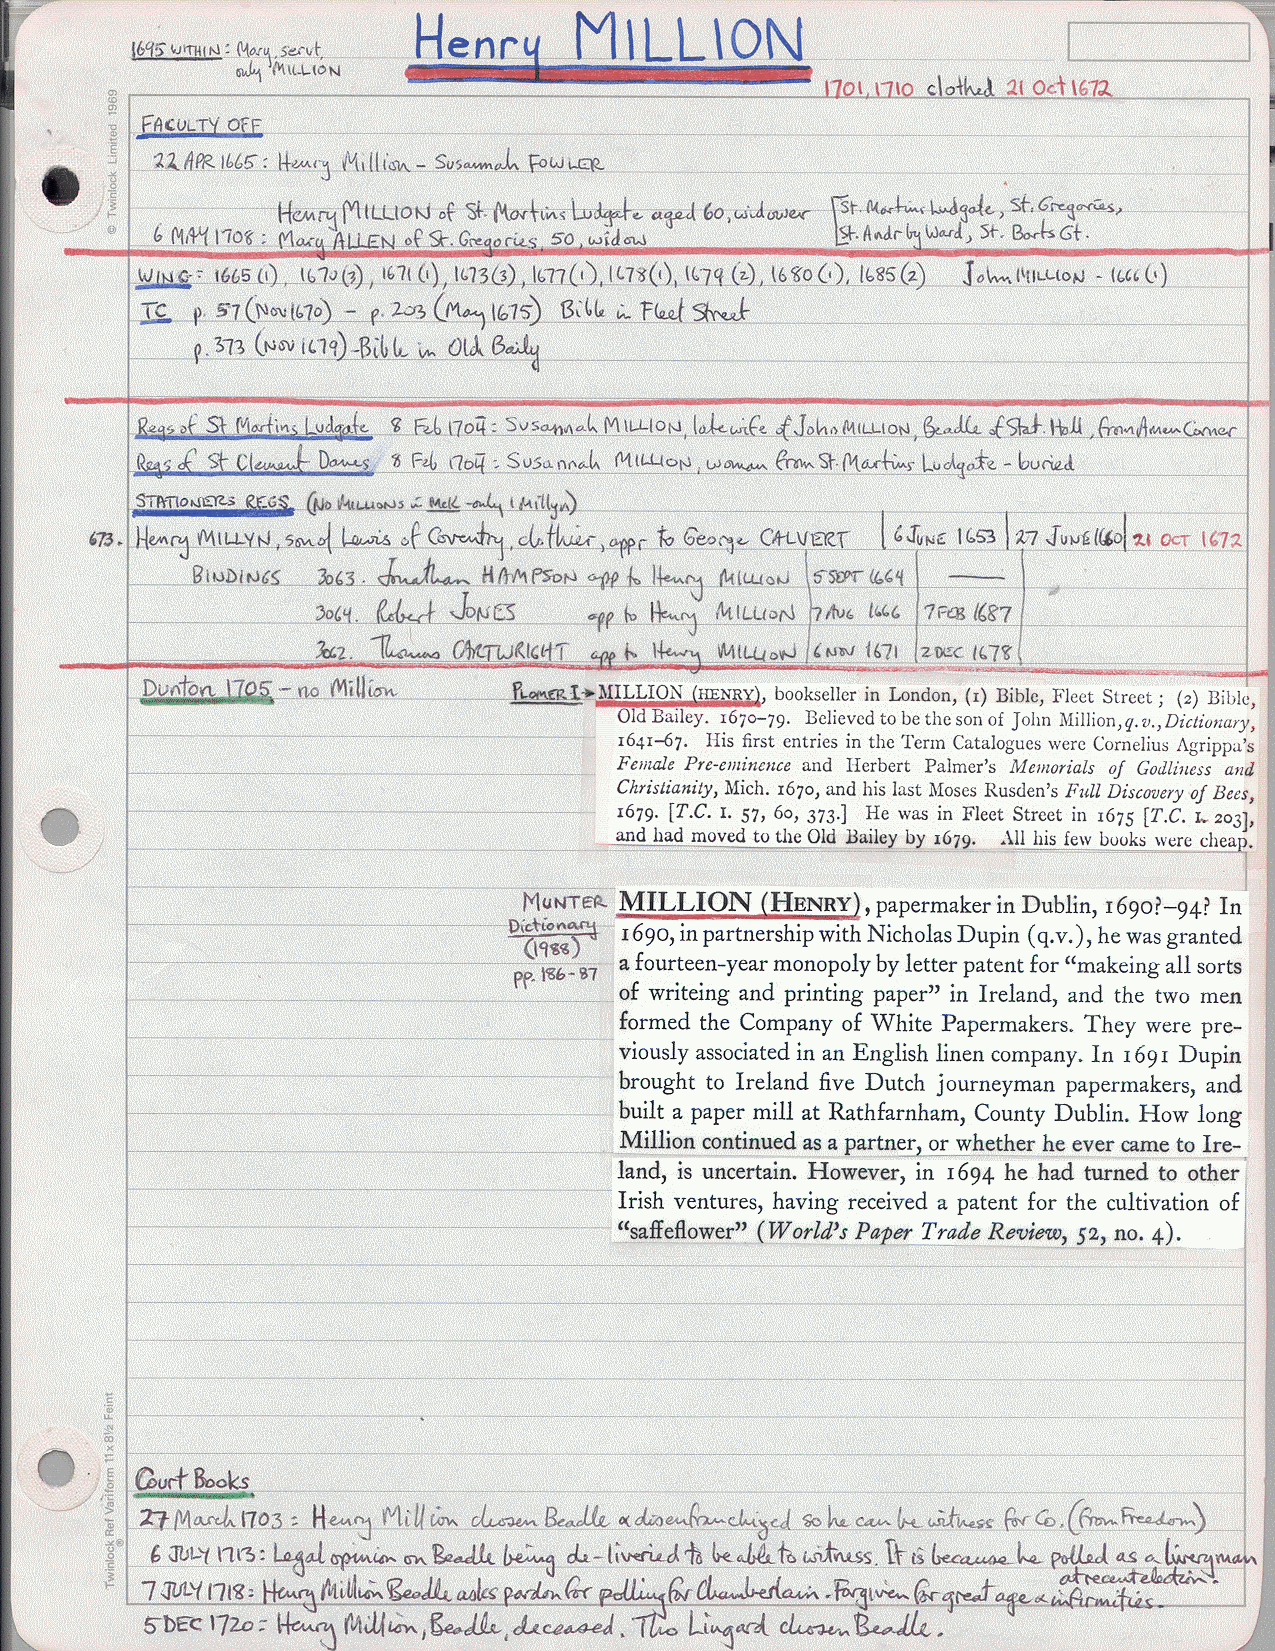 1695 WITHIN: Mary, servt
only MILLION
Henry MILLION
1701, 1710 clothed 21 Oct 1672
© Twinlock Limited 1969
FACULTY OFF
22 APR 1665: Henry Million – Susannah FOWLER
Henry MILLION of St. Martins Ludgate aged 60, widower
6 MAY 1708: Mary ALLEN of St. Gregories, 50, widow
[St. Martins Ludgate, St. Gregories,
St. Andr by Ward, St. Barts Gt.
WING: 1665 (1), 1670 (3), 1671 (1), 1673 (3), 1677 (1), 1678 (1), 1679 (2), 1680 (1), 1685 (2) John MILLION - 1666 (1)
TC p. 57 (Nov 1670) – p. 203 (May 1675) Bible in Fleet Street
p. 373 (NOV 1679) - Bible in Old Baily
Regs of St Martins Ludgate 8 Feb 1704: Susannah MILLION, late wife of John MILLION, Beadle of Stat. Hall, from Amen Corner
Regs of St Clement Danes 8 Feb 1704: Susannah MILLION, woman from St. Martins Ludgate – buried
STATIONERS REGS (No MILLIONS in McK - only 1 Millyn)
673. Henry MILLYN, son of Lewis of Coventry, clothier, appr to George CALVERT | 6 JUNE 1653 | 27 JUNE 1660 | 21 OCT 1672
BINDINGS 3063. Jonathan HAMPSON app to Henry MILLION | 5 SEPT 1664 | —
3064. Robert JONES app to Henry MILLION | 7 AUG 1666 | 7 FEB 1687
3062. Thomas CARTWRIGHT app to Henry MILLION | 6 NOV 1671 | 2 DEC 1678
Dunton 1705 – no Million
PLOMER I → MILLION (HENRY), bookseller in London, (1) Bible, Fleet Street; (2) Bible,
Old Bailey. 1670–79. Believed to be the son of John Million, q.v., Dictionary,
1641–67. His first entries in the Term Catalogues were Cornelius Agrippa's
Female Pre-eminence and Herbert Palmer's Memorials of Godliness and
Christianity, Mich. 1670, and his last Moses Rusden's Full Discovery of Bees,
1679. [T.C. I. 57, 60, 373.] He was in Fleet Street in 1675 [T.C. I. 203],
and had moved to the Old Bailey by 1679. All his few books were cheap.
MUNTER
Dictionary
(1988)
pp. 186-87
MILLION (HENRY), papermaker in Dublin, 1690?–94? In
1690, in partnership with Nicholas Dupin (q.v.), he was granted
a fourteen-year monopoly by letter patent for “makeing all sorts
of writeing and printing paper” in Ireland, and the two men
formed the Company of White Papermakers. They were pre-
viously associated in an English linen company. In 1691 Dupin
brought to Ireland five Dutch journeyman papermakers, and
built a paper mill at Rathfarnham, County Dublin. How long
Million continued as a partner, or whether he ever came to Ire-
land, is uncertain. However, in 1694 he had turned to other
Irish ventures, having received a patent for the cultivation of
“saffeflower” (World's Paper Trade Review, 52, no. 4).
Twinlock Ref Variform 11x8½ Feint
Court Books
27 March 1703: Henry Million chosen Beadle & disenfranchized so he can be witness for Co. (from Freedom)
6 JULY 1713: Legal opinion on Beadle being de-liveried to be able to witness. It is because he polled as a liveryman
at recent election.
7 JULY 1718: Henry Million Beadle asks pardon for polling for Chamberlain. Forgiven for great age & infirmities.
5 DEC 1720: Henry Million, Beadle, deceased. Tho Lingard chosen Beadle.